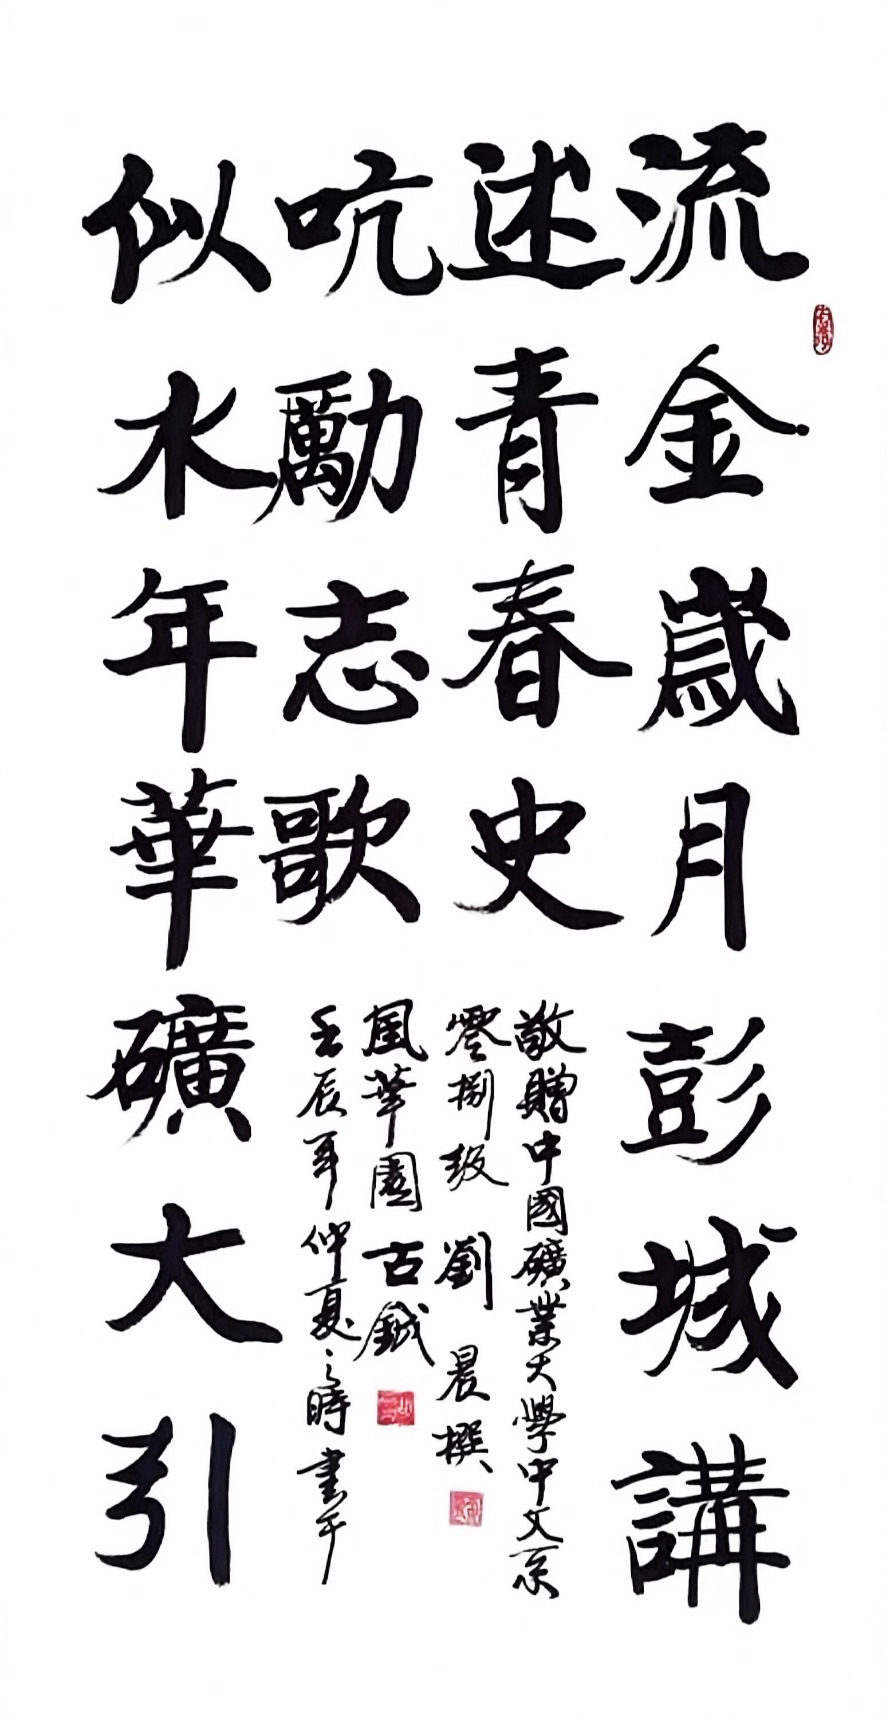 流金歲月彭城講
述青春史
似水年華礦大引
吭勵志歌
敬贈中國礦業大學中文系
零捌級 劉晨撰
壬辰年仲夏之時書于
風華園 古